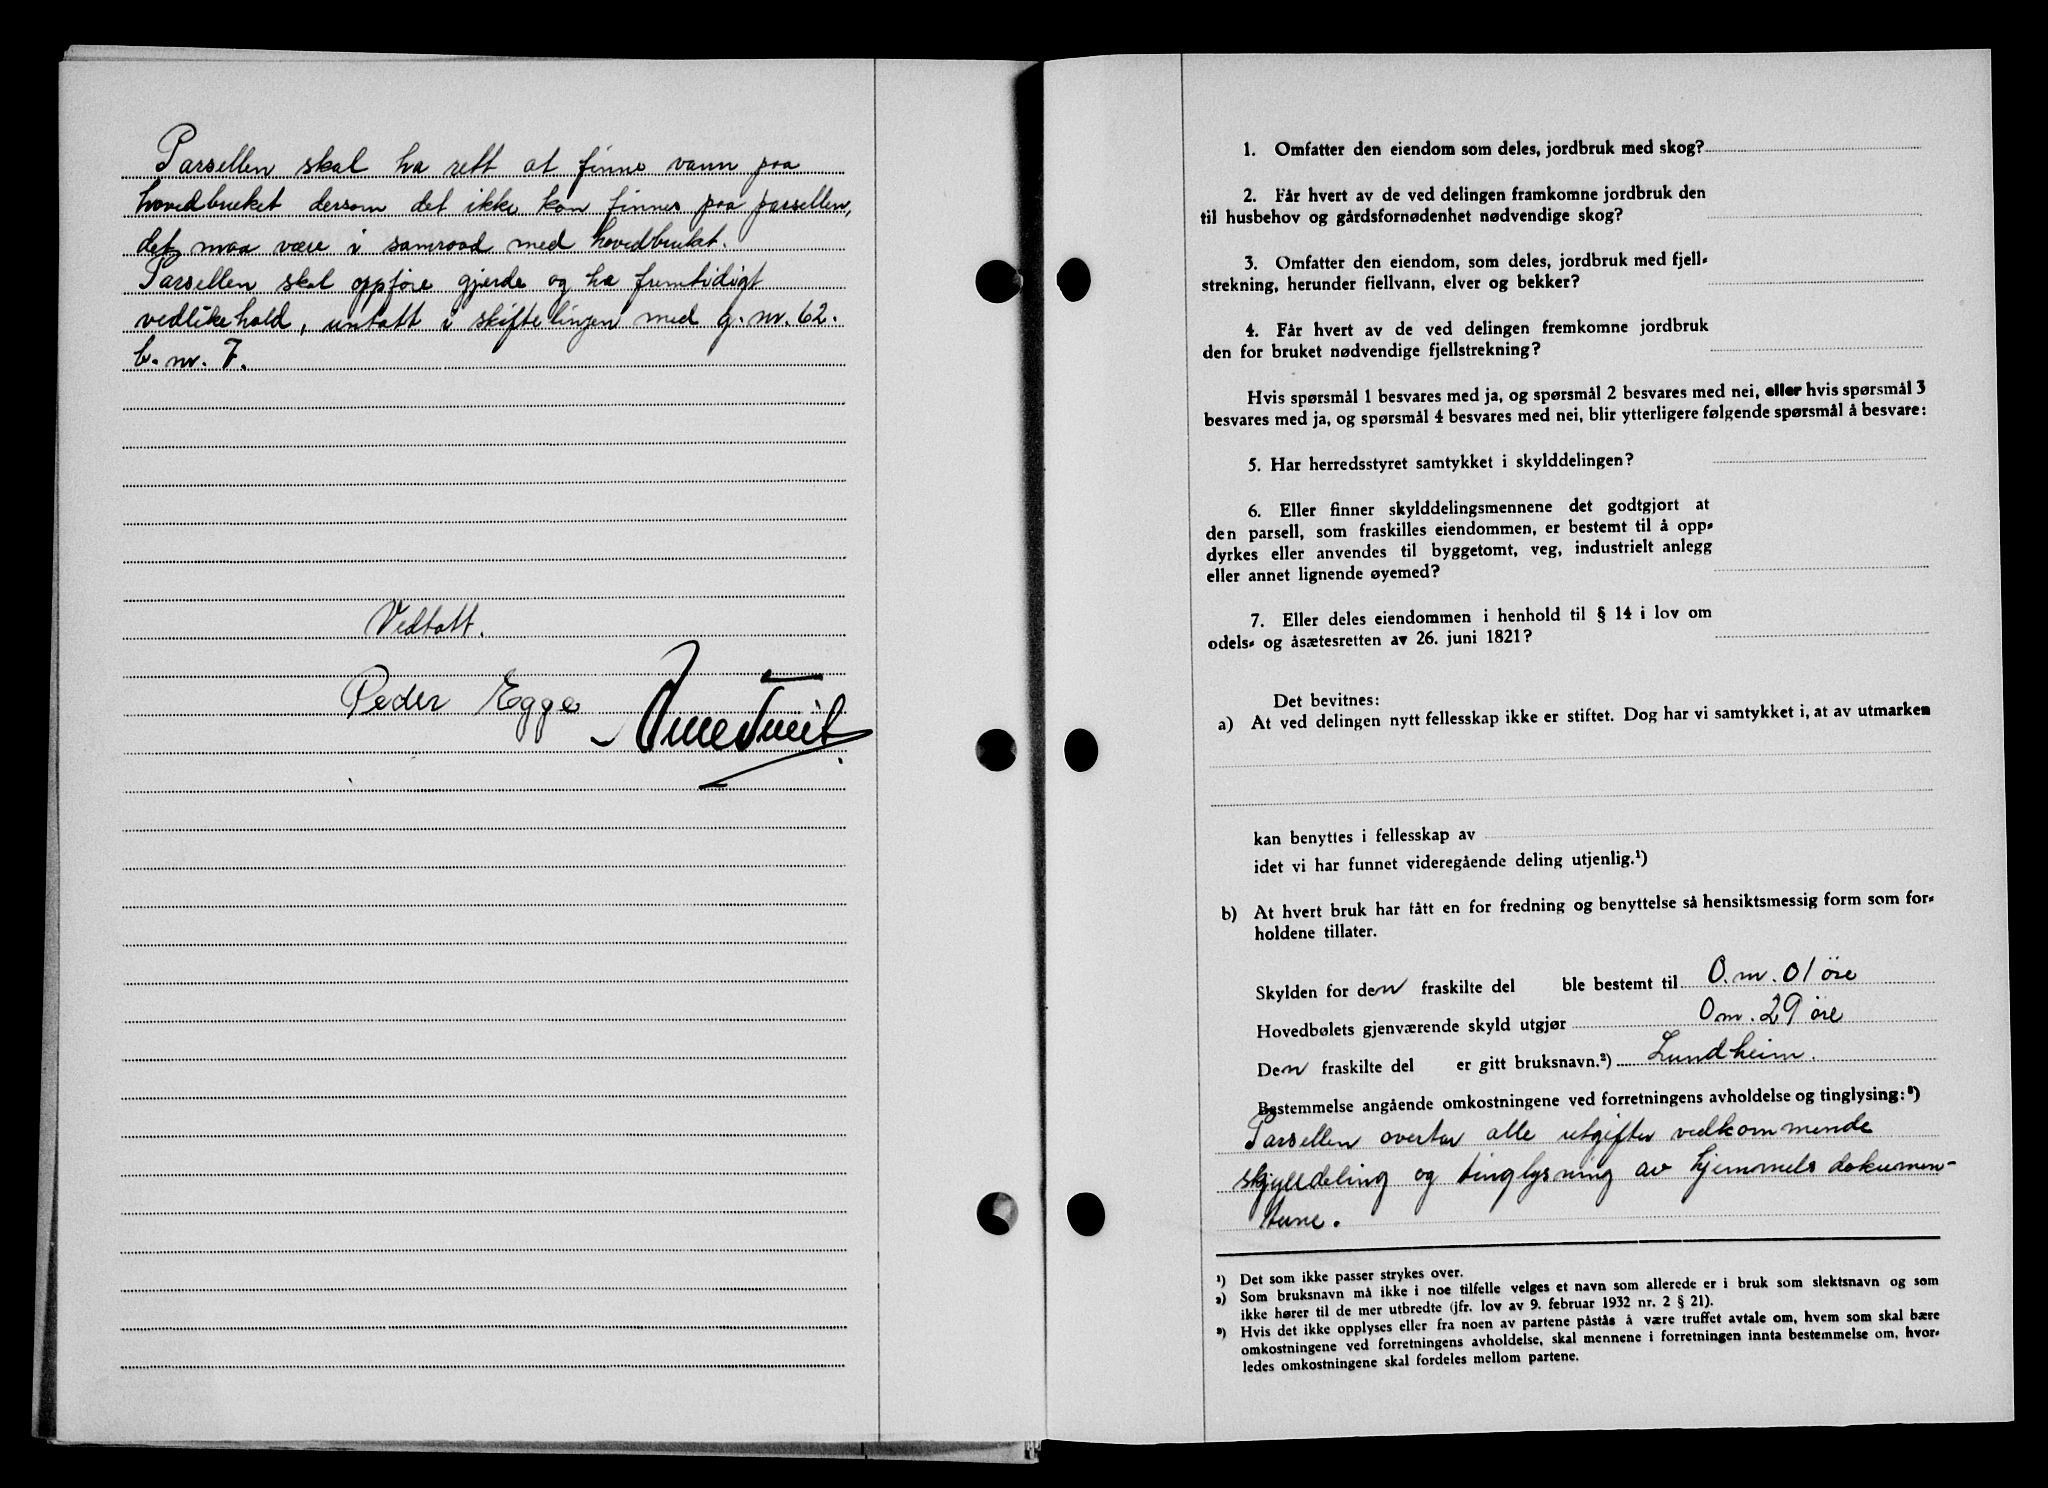 Parsellen skal ha rett at finne vann paa
hovedbruket dersom det ikke kan finnes paa parsellen,
det maa være i samraad med hovedbruket.
Parsellen skal oppføre gjerde og ha fremtidigt
vedlikehold, untatt i skiftelinjen med g. nr. 62.
b. nr. 7.
Vedtatt.
Peder Egge
1. Omfatter den eiendom som deles, jordbruk med skog?
2. Får hvert av de ved delingen framkomne jordbruk den
til husbehov og gårdsfornødenhet nødvendige skog?
3. Omfatter den eiendom, som deles, jordbruk med fjell-
strekning, herunder fiellvann, elver og bekker?
4. Får hvert av de ved delingen fremkomne jordbruk
den for bruket nødvendige fjellstrekning?
Hvis spørsmål 1 besvares med ja, og spørsmål 2 besvares med nei, eller hvis spørsmål 3
besvares med ja, og spørsmål 4 besvares med nei, blir ytterligere følgende spørsmål å besvare:
5. Har herredsstyret samtykket i skylddelingen?
6. Eller finner skylddelingsmennene det godtgjort at
den parsell, som fraskilles eiendommen, er bestemt til å opp-
dyrkes eller anvendes til byggetomt, veg, industrielt anlegg
eller annet lignende øyemed?
7. Eller deles eiendommen i henhold til § 14 i lov om
odels- og åsætesretten av 26. juni 1821?
Det bevitnes:
a) At ved delingen nytt fellesskap ikke er stiftet. Dog har vi samtykket i, at av utmarken
kan benyttes i fellesskap av
idet vi har funnet videregående deling utjenlig.¹)
b) At hvert bruk har fått en for fredning og benyttelse så hensiktsmessig form som for-
holdene tillater.
Skylden for den fraskilte del ble bestemt til 0. m. 01 øre
Hovedbølets gjenværende skyld utgjør 0 m. 29 øre
Den fraskilte del er gitt bruksnavn.²) Lundheim.
Bestemmelse angående omkostningene ved forretningens avholdelse og tinglysing:³)
Parsellen overtar alle utgifter vedkommende
skylldeling og tinglysning av hjemmels dokumen-
tene.
¹) Det som ikke passer strykes over.
²) Som bruksnavn må ikke i noe tilfelle velges et navn som allerede er i bruk som slektsnavn og som
ikke hører til de mer utbredte (jfr. lov av 9. februar 1932 nr. 2 § 21).
³) Hvis det ikke opplyses eller fra noen av partene påstås å være truffet avtale om, hvem som skal bære
omkostningene ved forretningens avholdelse, skal mennene i forretningen innta bestemmelse om, hvor-
ledes omkostningene skal fordeles mellom partene.